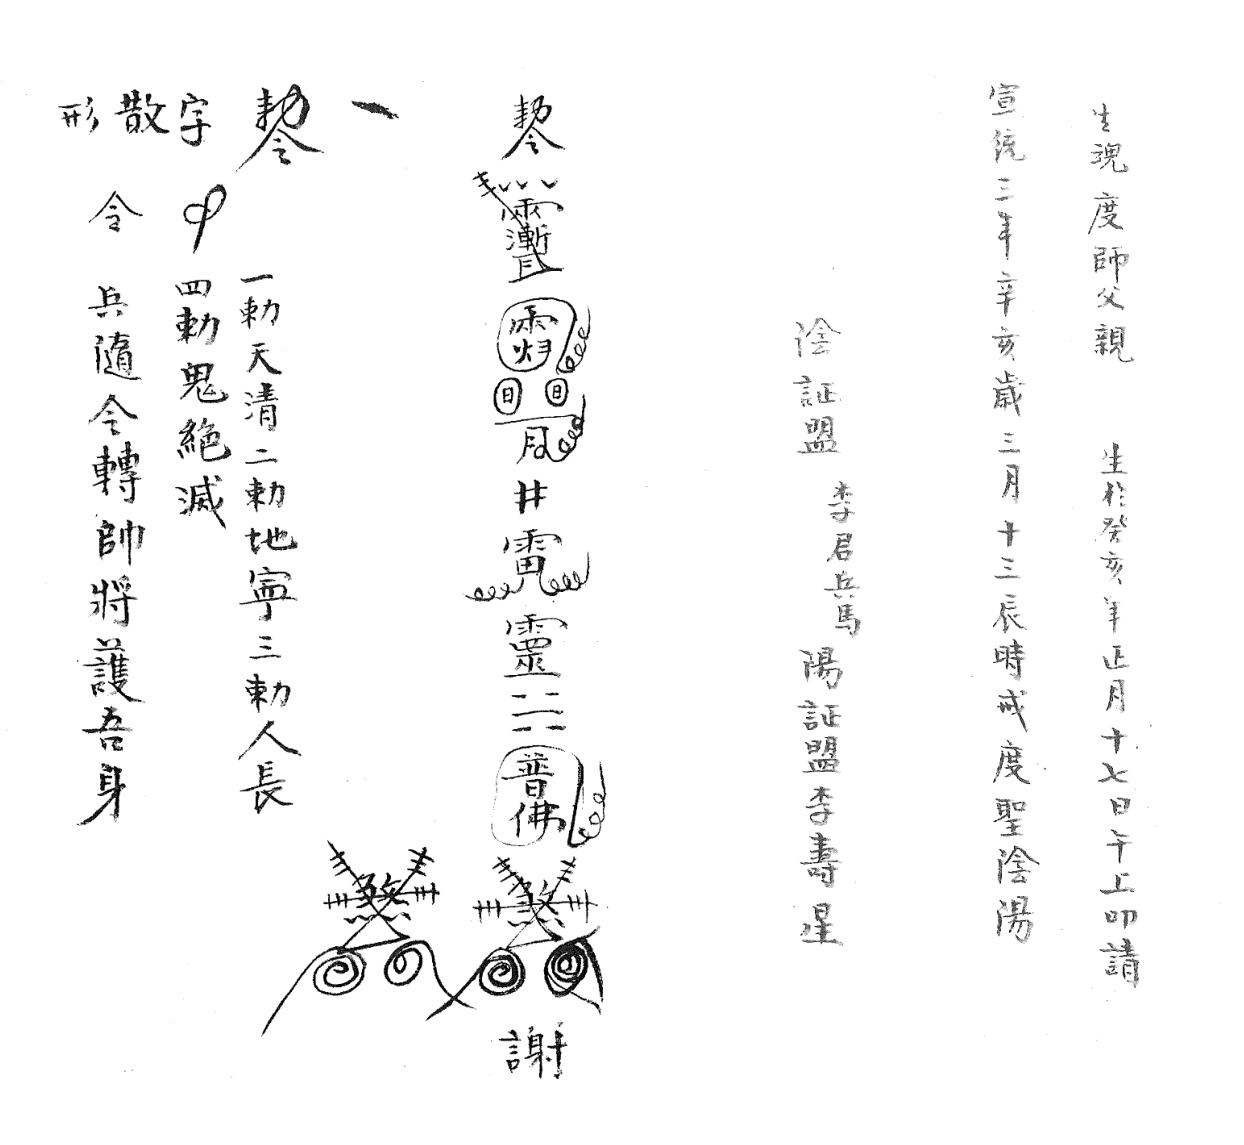 生魂度師父親 生於癸亥年正月十七日午上叩請
宣統三年辛亥歲三月十三辰時戒度聖陰陽
陰証盟 李君兵馬 陽証盟李壽星
勅令
井雷靈
普佛
煞
謝
一
勅令
煞
一勅天清二勅地寧三勅人長
字散形
四勅鬼絕滅
令 兵隨令轉帥將護吾身